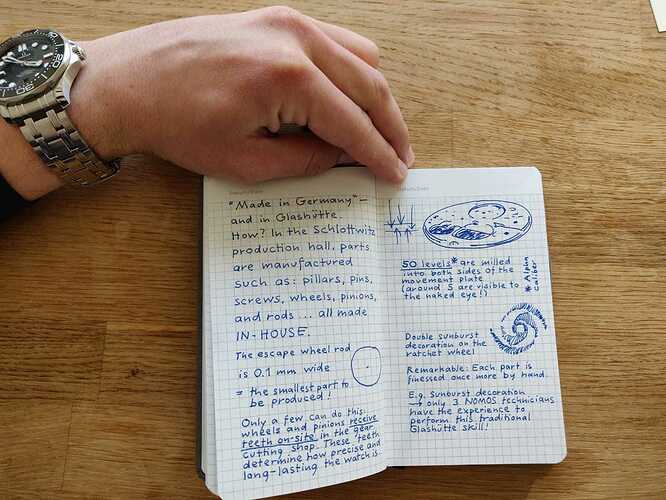 "Made in Germany" –
and in Glashütte.
How? In the Schlottwitz
production hall, parts
are manufactured
such as: pillars, pins,
screws, wheels, pinions,
and rods ... all made
IN-HOUSE.
The escape wheel rod
is 0.1 mm wide
= the smallest part to
be produced!
Only a few can do this
wheels and pinions receive
teeth on-site in the gear
cutting shop. These teeth
determine how precise and
long-lasting the watch is.
50 levels* are milled
into both sides of the
movement plate
(around 5 are visible to
the naked eye!)
* Alpha
caliber
Double sunburst
decoration on the
ratchet wheel
Remarkable: Each part is
finessed once more by hand.
E.g. sunburst decoration
→ only 3 NOMOS technicians
have the experience to
perform this traditional
Glashütte skill!